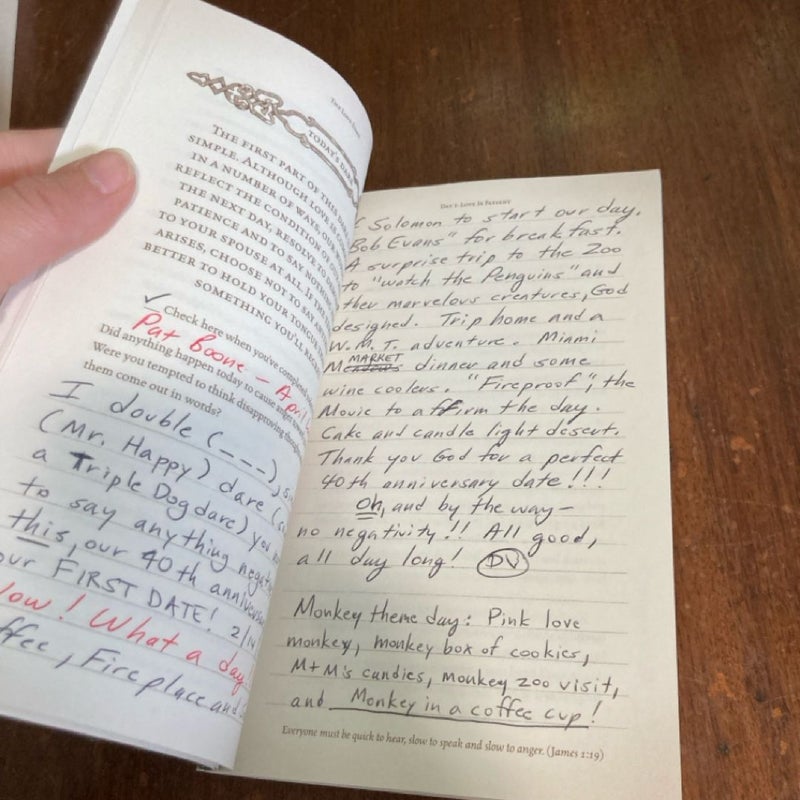 THE LOVE DARE
TODAY'S DARE
THE FIRST PART OF THIS DARE
SIMPLE. ALTHOUGH LOVE IS
IN A NUMBER OF WAYS, OUR
REFLECT THE CONDITION OF
THE NEXT DAY, RESOLVE TO
PATIENCE AND TO SAY NOTHING
TO YOUR SPOUSE AT ALL. IF THE
ARISES, CHOOSE NOT TO SAY
BETTER TO HOLD YOUR TONGUE
SOMETHING YOU'LL
✓ Check here when you've completed
Pat Boone – April
Did anything happen today to cause anger
Were you tempted to think disapproving
them come out in words?
I double (---),
(Mr. Happy) dare
a Triple Dogdare) you
to say anything
this, our 40th
our FIRST DATE! 2/14
What a day
Fireplace and
DAY 1: LOVE IS PATIENT
Solomon to start our day.
Bob Evans" for breakfast.
A surprise trip to the Zoo
to "watch the Penguins" and
marvelous creatures, God
designed. Trip home and a
W.M.T. adventure. Miami
MARKET
dinner and some
wine coolers. "Fireproof", the
Movie to affirm the day.
Cake and candle light desert.
Thank you God for a perfect
40th anniversary date!!!
Oh, and by the way –
no negativity!! All good,
all day long! DV
Monkey theme day: Pink love
monkey, monkey box of cookies,
M+M's candies, monkey zoo visit,
and Monkey in a coffee cup!
Everyone must be quick to hear, slow to speak and slow to anger. (James 1:19)